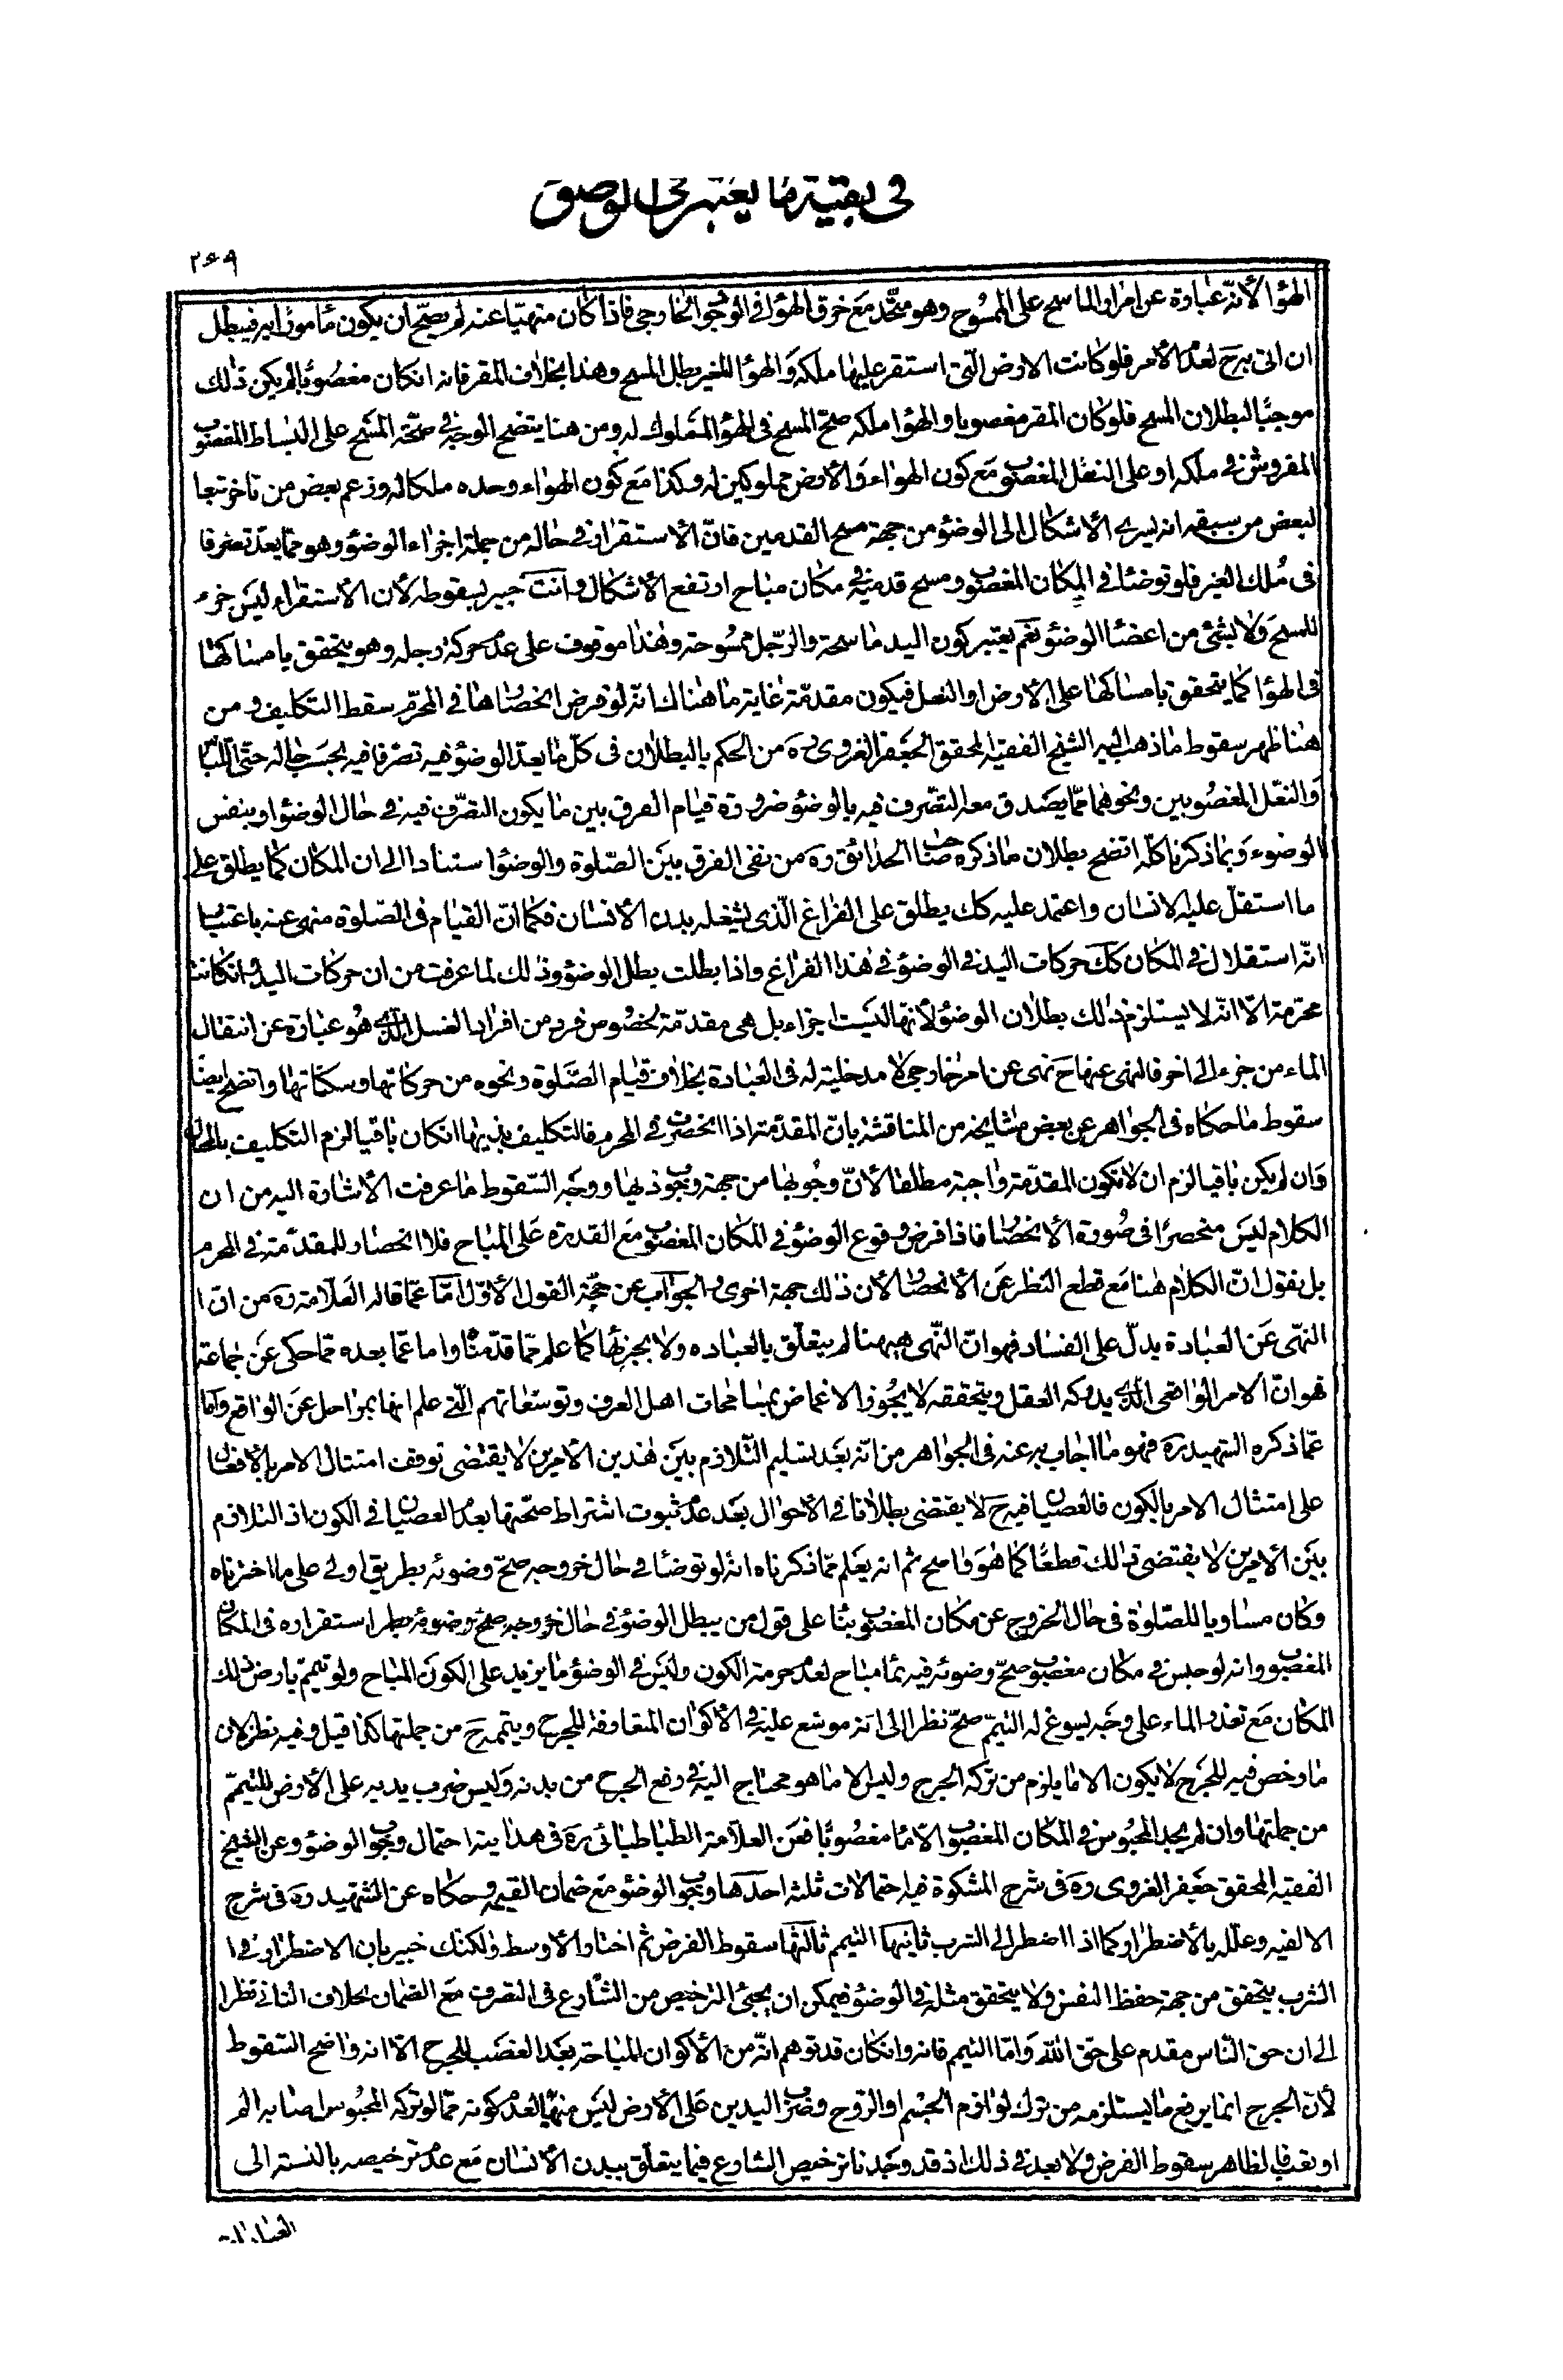 في بقية ما يعتبر في الوضوء
٢۶٩
الهؤالأنّه عبارة عن امرار الماسح على الممسُوح وهو متّحد مَع خرق الهؤافي الوجُوالخارجي فاذا كان منهيّا عنه لم يصحّ ان يكون مأمورًا به فيبطل
ان اتى به ح لعدم الأمر فلو كانت الارض الّتي استقر عليهٰا ملكه وَالهؤا للغير بطل المسح وهذا بخلاف المقر فانه انكان مغصُوبًا لم يكن ذلك
موجبًا لبطلان المسح فلو كان المقر مغصوبا والهؤا ملكه صحّ المسح في الهؤا المملوك له ومن هنا يتضح الوجه في صحّة المسَح على البسٰاط المغصُوب
المفروش في ملكه او على النعَل المغصُوب مَع كون الهوٰاء وَالأرض مملوكين له وكذا مَع كون الهوٰاء وحده ملكا له وزعم بعض من تأخر تبعا
لبعض من سبقه انه يسرى الأشكٰال الى الوضؤ من جهة مسح القدمين فانّ الأستقرار في حاله من جملة اجزاء الوضؤ وهو ممّا يعدّ تصرفا
في مُلك الغير فلو توضأ في المكان المغصُوب ومسح قدميه في مكان مبٰاح ارتفع الأشكال وانت خبير بسقوطه لأن الأستقرار ليَس جزء
للمسح وَلا لشئ من اعضٰا الوضؤ نعَم يعتبر كون اليد مٰاسحة والرّجل ممسُوحة وهٰذا موقوف على عدم حركة رجله وهو يتحقق بامسٰاكهٰا
في الهؤا كما يتحقق بامسٰاكهٰا على الأرض او النعل فيكون مقدمّة غاية مٰا هنٰاك انّه لو فرض انحصٰارهٰا في المحرّم سقط التكليف ومن
هنٰا ظهر سقوط ماذهب اليه الشيخ الفقيه المحقق الجعَفر الغروى ره من الحكم بالبطلان في كلّ مٰا يعدّ الوضؤ فيه تصرّفا فيه بحسَب حاله حتّى اللّبٰاس
وَالنعّل المغصُوبين ونحوهما ممّا يصَدق معه التصّرف فيه بالوضؤ ضرورة قيٰام الفرق بين مٰا يكون التصّرف فيه في حال الوضؤ او بنفس
الوضوء وَبمٰا ذكرنا كلّه اتضح بطلان ماذكره صٰاحب الحدٰائق ره من نفى الفرق بيَن الصّلوة والوضؤ استنادا الى ان المكان كمٰا يطلق على
ما استقلّ عليه الانسٰان واعتمد عليه كك يطلق على الفرٰاغ الّذى يشغله بدن الأنسٰان فكما انّ القيٰام في الصّلوة منهى عنه باعتبٰار
انّه استقلال في المكان كك حركات اليد في الوضؤ في هٰذا الفرٰاغ واذا بطلت بطل الوضؤ وذلك لما عرفت من ان حركات اليد وانكانت
محرّمة الّا انّه لا يستلزم ذلك بطلان الوضؤ لأنهّا ليَست اجزاء بل هى مقدمّة لخصُوص فرد من افراد الغسل الّذى هُو عبٰارة عن انتقال
الماء من جزء الى اخر فالنهى عنهٰا ح نهى عن امر خارجى لا مدخلية له في العبٰادة بخلاف قيٰام الصَّلوة ونحوه من حركاتهٰا وسكنٰاتهٰا واتضح ايضًا
سقوط ماحكٰاه في الجوٰاهر عن بعض مشٰايخه من المناقشة بانّ المقدّمة اذا انحصرت في المحرم فالتكليف بذيهٰا انكان باقيا لزم التكليف بالمحال
وَان لم يكن باقيا لزم ان لا تكون المقدّمة وٰاجبة مطلقا لأنّ وجُوبهٰا من جهة وجُوب ذيهٰا ووجَه السّقوط مٰا عرفت الأشارة اليه من ان
الكلام ليَس منحصرًا في صُورة الأنحصٰار فاذا فرض وقوع الوضؤ في المكان المغصُوب مَع القدرة عَلى المبٰاح فلا انحصار للمقدّمة في المحرم
بل نقول انّ الكلام هٰنا مَع قطع النظر عَن الأنحصٰار لأن ذلك جهة اخرى والجوٰاب عن حجّة القول الأوّل امّا عمّا قاله العَلّامة ره من انّ ا
النهّى عَن العبٰادة يدلّ على الفسٰاد فهو انّ النّهى هيهنا لم يتعلّق بالعبٰاده ولا بجزئهٰا كمٰا علم ممّا قدّمنٰا واما عمّا بعده ممّا حكى عَن جمٰاعة
فهو انّ الامر الوٰاقعى الّذى يدركه العقل ويتحققه لا يجُوز الاغمٰاض بمسٰامحات اهل العرف وتوسّعٰاتهم الّتي علم انها بمرٰاحل عَن الوٰاقع وَامّا
عمّا ذكره الشهيد ره فهو مٰا اجٰاب به عنه في الجوٰاهر من انّه بعَد تسليم التّلازم بيَن هٰذين الأمرين لا يقتضى توقف امتثال الامر بالأفعٰال
على امتثال الامر بالكون فالعصيٰان فيه ح لا يقتضى بطلانها في الأحوٰال بعَد عدم ثبوت اشتراط صحّتهٰا بعدم العصيٰان في الكون اذ التلازم
بيَن الأمرين لا يقتضى ذلك قطعًا كمٰا هُوَ وٰاضح ثم انه يعَلم ممّا ذكرنٰاه انّه لو توضأ في حٰال خروجه صحّ وضوئه بطريق اولى على ما اخترنٰاه
وكان مسٰاويا للصّلوٰة في حٰال الخروج عن مكان المغصُوب بنٰا على قول من يبطل الوضؤ في حٰال استقراره في المكان
المغصُوب وانه لو حبس في مكان مغصُوب صحّ وضوئه فيه بمٰا مبٰاح لعدم حرمة الكون وليَس في الوضؤ مٰا يزيد على الكون المبٰاح ولو تيمم بارض ذلك
المكان مَع تعذر المٰاء على وجَه يسوغ له التيمّم صحّ نظرا الى انّه موسّع عليه في الأكوٰان المتعارفة للحرج والتيمم ح من جملتهٰا كذا قيل وفيه نظر لان
مارخص فيه للحَرج لا يكون الا مٰا يلزم من تركه الحرج وليس الا مٰا هو محتاج اليه في دفع الحرج من بدنه وَليس ضرب يديه على الأرض للتيمّم
من جملتهٰا وان لم يجد المحبُوس في المكان المغصُوب الّا مٰا مغصُوبًا فعَن العلّامة الطبٰاطبٰائى ره في هدٰايته احتمال وجُوب الوضؤ وعن الشيخ
الفقيه المحقق جعَفر الغروى ره في شرح المشكوة فيه احتمالات ثلثة احدهٰا وجُوب الوضؤ مَع ضمان القيمة وحكاه عن الشهيد ره في شرح
الالفيه وعلّله بالأضطرٰار كما اذا اضطر الى الشرب ثانيهٰا التيمم ثالثهٰا سقوط الفرض ثم اختار الأوسط ولكنك خبير بان الاضطرٰار في ا
الشرب يتحقق من جهة حفظ النفس ولا يتحقق مثله في الوضؤ فيمكن ان يجئ الترخيص من الشّارع في التصرف مَع الضّمان بخلاف الثاني نظرا
الى ان حق النّاس مقدم على حق اللّٰه وَامّا التيمم فانه وانكان قد توهم انّه من الأكوان المبٰاحة بعَد الغصَب للحرج الّا انه وٰاضح السّقوط
لأنّ الحرج انما يرفع مٰا يستلزمه من ترك لوٰازم الجسم او الرّوح وضرب اليدين عَلى الأرض ليَس منهٰا لعدم كونه ممّا لو تركه المحبُوس اصٰابه الم
او تعب فالظاهر سقوط الفرض ولا بعد في ذلك اذ قد وجَدنا ترخيص الشارع فيما يتعلّق ببدن الأنسٰان مَع عدم ترخيصه بالنسبة الى
العبٰادات